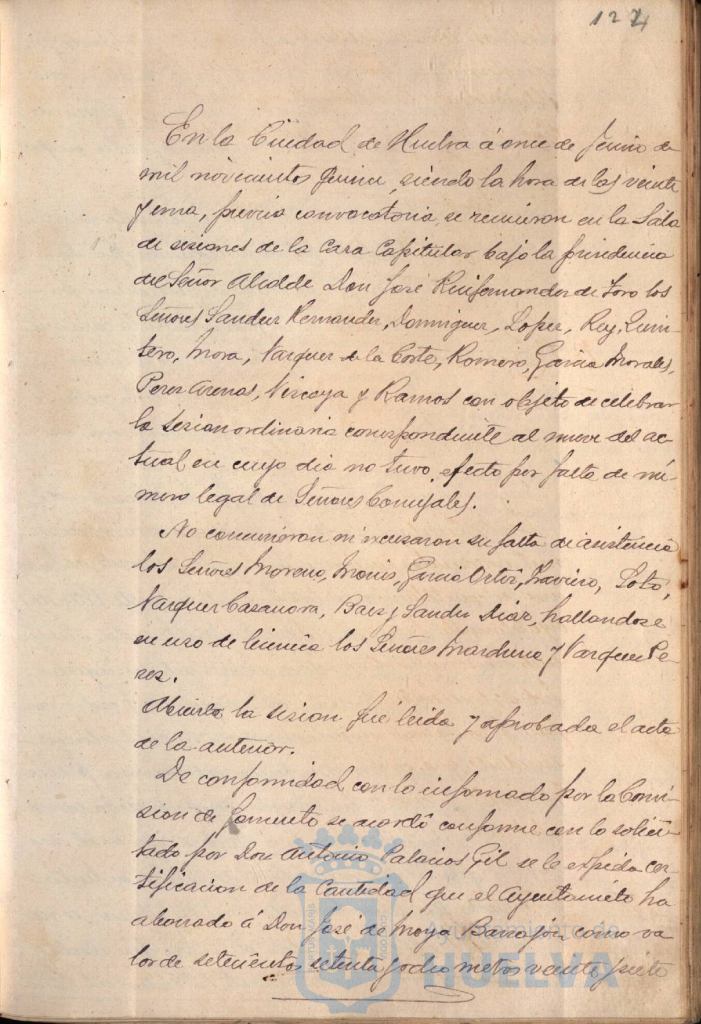 124
En la Ciudad de Huelva á once de Junio de
mil novecientos quince, siendo la hora de las veinte
y una, previa convocatoria, se reunieron en la Sala
de sesiones de la Casa Capitular bajo la presidencia
del Señor Alcalde Don José Ruifernandez de Toro los
Señores Sanchez Hernandez, Dominguez, Lopez, Rey, Quin-
tero, Mora, Vazquez de la Corte, Romero, Garcia Morales,
Perez Arenas, Vizcaya y Ramos con objeto de celebrar
la sesion ordinaria correspondiente al nueve del ac-
tual en cuyo dia no tuvo efecto por falta de nú-
mero legal de Señores Concejales.
No concurrieron ni excusaron su falta de asistencia
los Señores Moreno, Garcia Ortiz, Soto,
Vazquez Casanova, Baez y Sanchez Diaz, hallandose
en uso de licencia los Señores y Vazquez Pe-
rez.
Abierta la sesion fué leida y aprobada el acta
de la anterior.
De conformidad con lo informado por la Comi-
sion de Fomento se acordó conforme con lo solici-
tado por Don Antonio Palacios Gil se le expida cer-
tificacion de la cantidad que el Ayuntamiento ha
abonado á Don José de Moya Barrajon como va-
lor de setecientos setenta y ocho metros veinte y siete
Ayuntamiento de
HUELVA